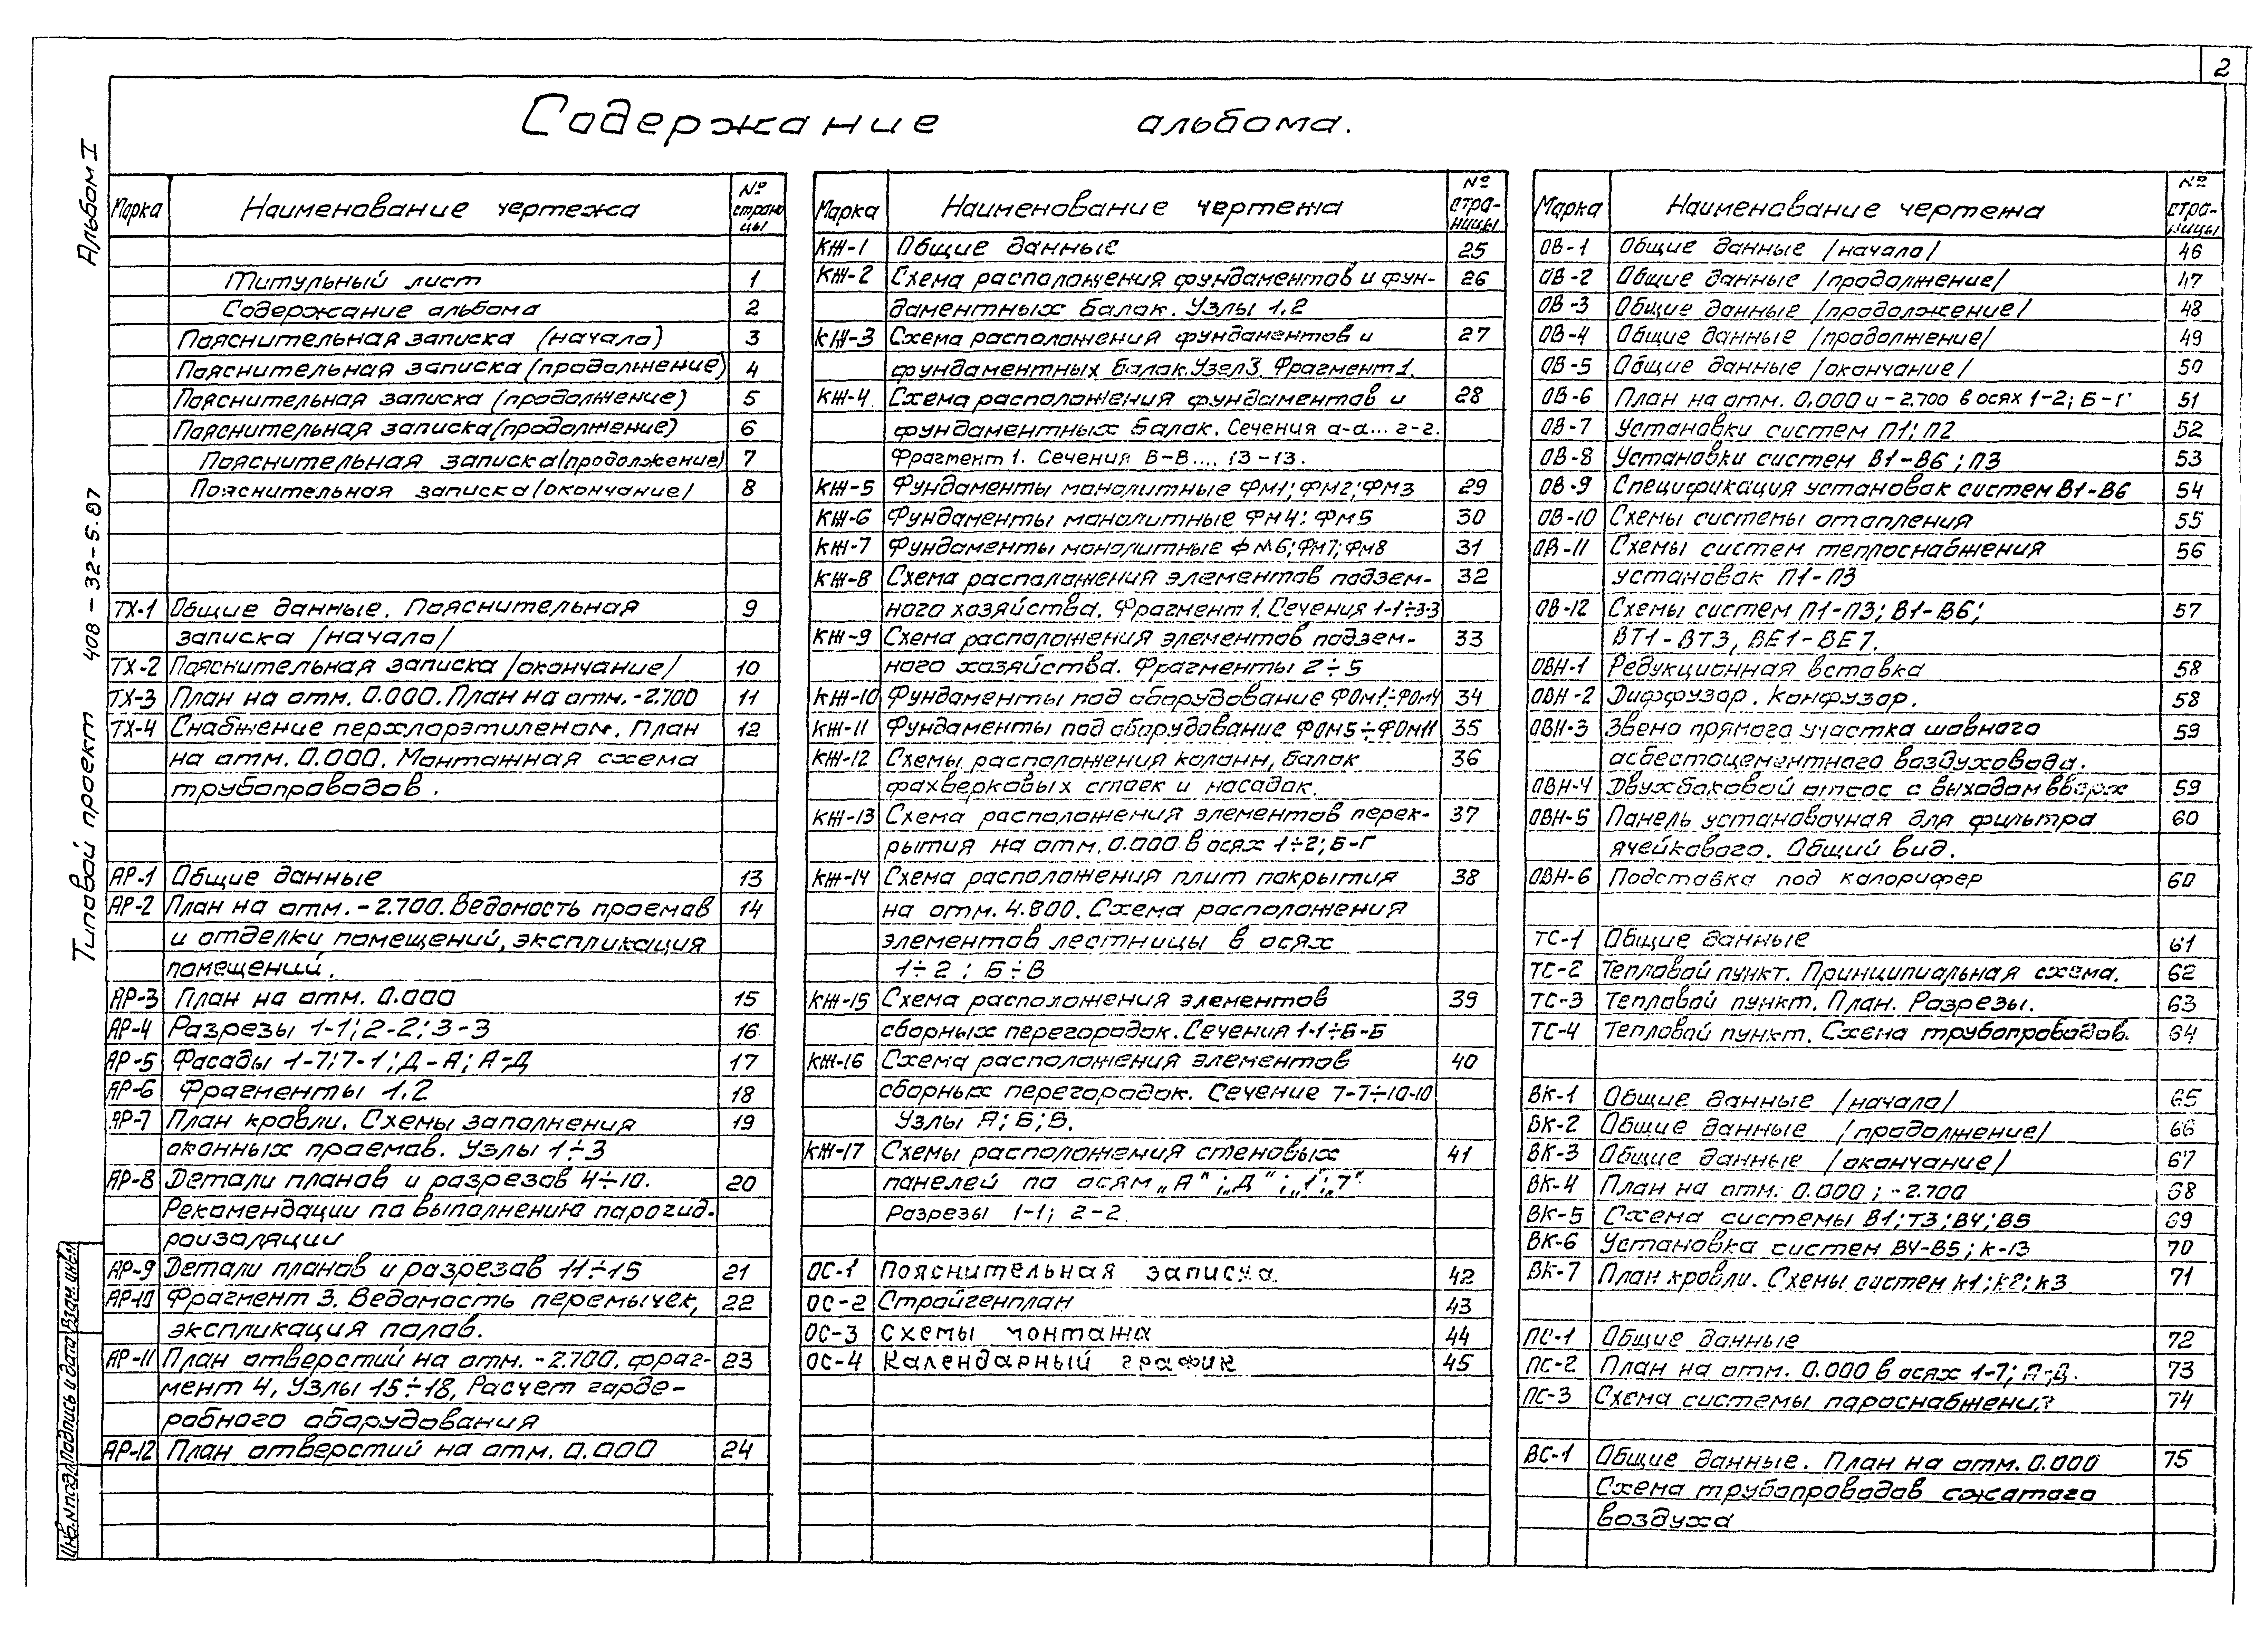 2
Содержание альбома.
Альбом I
Типовой проект 408-32-5.87
Инв.N подл. Подпись и дата Взам. инв.N
Марка Наименование чертежа № страницы
Титульный лист 1
Содержание альбома 2
Пояснительная записка (начало) 3
Пояснительная записка (продолжение) 4
Пояснительная записка (продолжение) 5
Пояснительная записка (продолжение) 6
Пояснительная записка (продолжение) 7
Пояснительная записка (окончание) 8
ТХ-1 Общие данные. Пояснительная 9
записка /начало/
ТХ-2 Пояснительная записка /окончание/ 10
ТХ-3 План на отм. 0.000. План на отм. -2.700 11
ТХ-4 Снабжение перхлорэтиленом. План 12
на отм. 0.000. Монтажная схема
трубопроводов.
АР-1 Общие данные 13
АР-2 План на отм. -2.700. Ведомость проемов 14
и отделки помещений, экспликация
помещений.
АР-3 План на отм. 0.000 15
АР-4 Разрезы 1-1; 2-2; 3-3 16
АР-5 Фасады 1-7; 7-1; Д-А; А-Д 17
АР-6 Фрагменты 1.2 18
АР-7 План кровли. Схемы заполнения 19
оконных проемов. Узлы 1÷3
АР-8 Детали планов и разрезов 4÷10. 20
Рекомендации по выполнению парогид-
роизоляции
АР-9 Детали планов и разрезов 11÷15 21
АР-10 Фрагмент 3. Ведомость перемычек, 22
экспликация полов.
АР-11 План отверстий на отм. -2.700. фраг- 23
мент 4, Узлы 15÷18, Расчет гарде-
робного оборудования
АР-12 План отверстий на отм. 0.000 24
Марка Наименование чертежа № стра-ницы
КЖ-1 Общие данные 25
КЖ-2 Схема расположения фундаментов и фун- 26
даментных балок. Узлы 1.2
КЖ-3 Схема расположения фундаментов и 27
фундаментных балок. Узел 3. Фрагмент 1.
КЖ-4 Схема расположения фундаментов и 28
фундаментных балок. Сечения а-а... г-г.
Фрагмент 1. Сечения В-В.... 13-13.
КЖ-5 Фундаменты монолитные ФМ1; ФМ2; ФМ3 29
КЖ-6 Фундаменты монолитные ФМ4; ФМ5 30
КЖ-7 Фундаменты монолитные ФМ6; ФМ7; ФМ8 31
КЖ-8 Схема расположения элементов подзем- 32
ного хозяйства. Фрагмент 1. Сечения 1-1÷3-3
КЖ-9 Схема расположения элементов подзем- 33
ного хозяйства. Фрагменты 2÷5
КЖ-10 Фундаменты под оборудование ФОМ1÷ФОМ4 34
КЖ-11 Фундаменты под оборудование ФОМ5÷ФОМ11 35
КЖ-12 Схемы расположения колонн, балок 36
фахверковых стоек и насадок.
КЖ-13 Схема расположения элементов перек- 37
рытия на отм. 0.000 в осях 1÷2; Б-Г
КЖ-14 Схема расположения плит покрытия 38
на отм. 4.800. Схема расположения
элементов лестницы в осях
1÷2; Б÷В
КЖ-15 Схема расположения элементов 39
сборных перегородок. Сечения 1-1÷Б-Б
КЖ-16 Схема расположения элементов 40
сборных перегородок. Сечение 7-7÷10-10
Узлы А; Б; В.
КЖ-17 Схемы расположения стеновых 41
панелей по осям „А"; „Д"; „1"; „7".
Разрезы 1-1; 2-2.
ОС-1 Пояснительная записка 42
ОС-2 Стройгенплан 43
ОС-3 Схемы монтажа 44
ОС-4 Календарный график 45
Марка Наименование чертежа № стра-ницы
ОВ-1 Общие данные /начало/ 46
ОВ-2 Общие данные /продолжение/ 47
ОВ-3 Общие данные /продолжение/ 48
ОВ-4 Общие данные /продолжение/ 49
ОВ-5 Общие данные /окончание/ 50
ОВ-6 План на отм. 0.000 и -2.700 в осях 1-2; Б-Г 51
ОВ-7 Установки систем П1; П2 52
ОВ-8 Установки систем В1-В6; П3 53
ОВ-9 Спецификация установок систем В1-В6 54
ОВ-10 Схемы системы отопления 55
ОВ-11 Схемы систем теплоснабжения 56
установок П1-П3
ОВ-12 Схемы систем П1-П3; В1-В6; 57
ВТ1-ВТ3, ВЕ1-ВЕ7.
ОВН-1 Редукционная вставка 58
ОВН-2 Диффузор. Конфузор. 58
ОВН-3 Звено прямого участка шовного 59
асбестоцементного воздуховода.
ОВН-4 Двухбоковой отсос с выходом вверх 59
ОВН-5 Панель установочная для фильтра 60
ячейкового. Общий вид.
ОВН-6 Подставка под калорифер 60
ТС-1 Общие данные 61
ТС-2 Тепловой пункт. Принципиальная схема. 62
ТС-3 Тепловой пункт. План. Разрезы. 63
ТС-4 Тепловой пункт. Схема трубопроводов. 64
ВК-1 Общие данные /начало/ 65
ВК-2 Общие данные /продолжение/ 66
ВК-3 Общие данные /окончание/ 67
ВК-4 План на отм. 0.000; -2.700 68
ВК-5 Схема системы В1; Т3; В4; В5 69
ВК-6 Установка систем В4-В5; К-13 70
ВК-7 План кровли. Схемы систем К1; К2; К3 71
ПС-1 Общие данные 72
ПС-2 План на отм. 0.000 в осях 1-7; А-Д. 73
ПС-3 Схема системы пароснабжения 74
ВС-1 Общие данные. План на отм. 0.000 75
Схема трубопроводов сжатого
воздуха